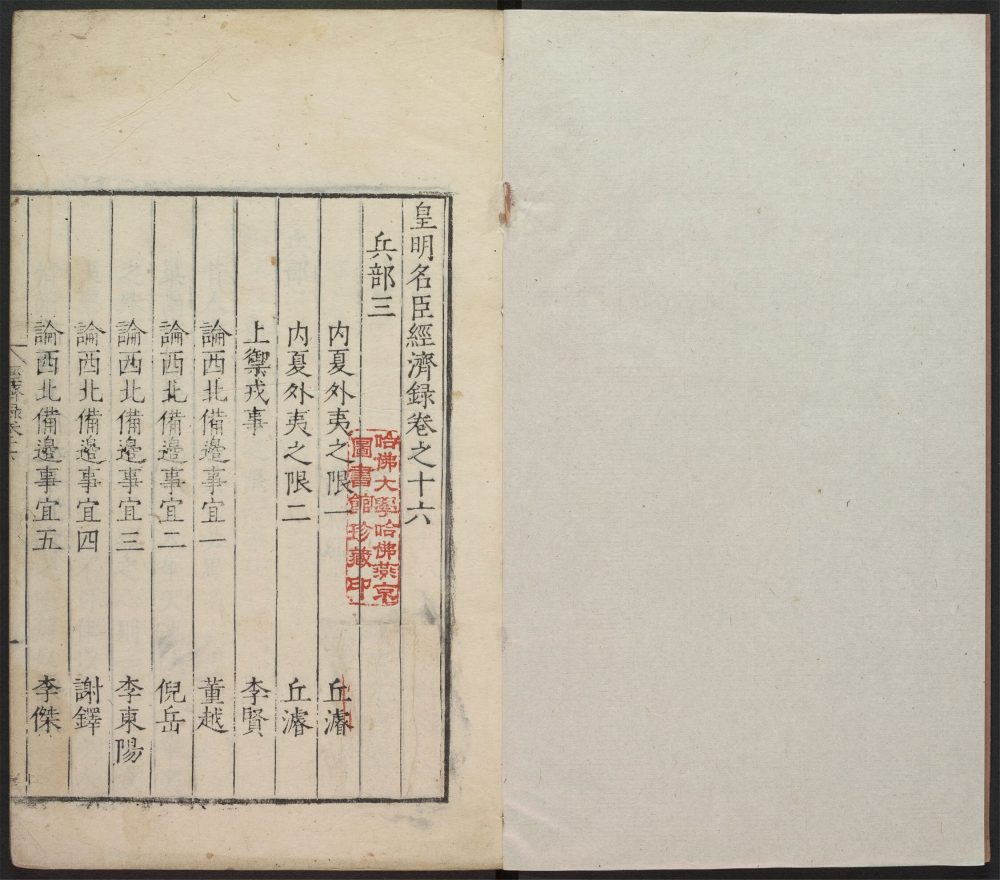 皇明名臣經濟錄卷之十六
兵部三
内夏外夷之限一 丘濬
内夏外夷之限二 丘濬
上禦戎事 李賢
論西北備邊事宜一 董越
論西北備邊事宜二 倪岳
論西北備邊事宜三 李東陽
論西北備邊事宜四 謝鐸
論西北備邊事宜五 李傑
哈佛大學哈佛燕京
圖書館珍藏印